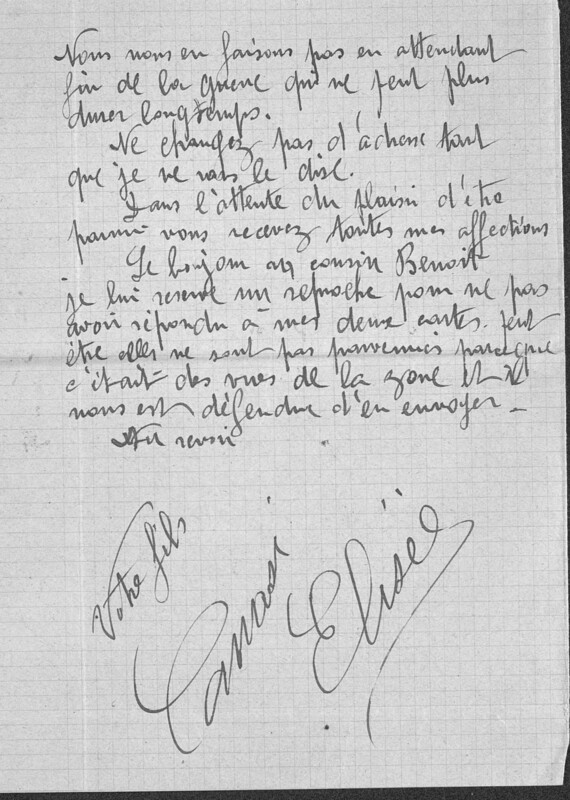 Nous nous en faisons pas en attendant
fin de la guerre qui ne peut plus
durer longtemps.
Ne changez pas d'adresse tant
que je ne vous le dise.
Dans l'attente du plaisir d'être
parmi vous recevez toutes mes affections
Le bonjour au cousin Benoit
je lui reserve un reproche pour ne pas
avoir répondu à mes deux cartes. peut
être elles ne sont pas parvenues parceque
c'était des vues de la zone et il
nous est défendue d'en envoyer _
Au revoir
Votre fils
Elisée